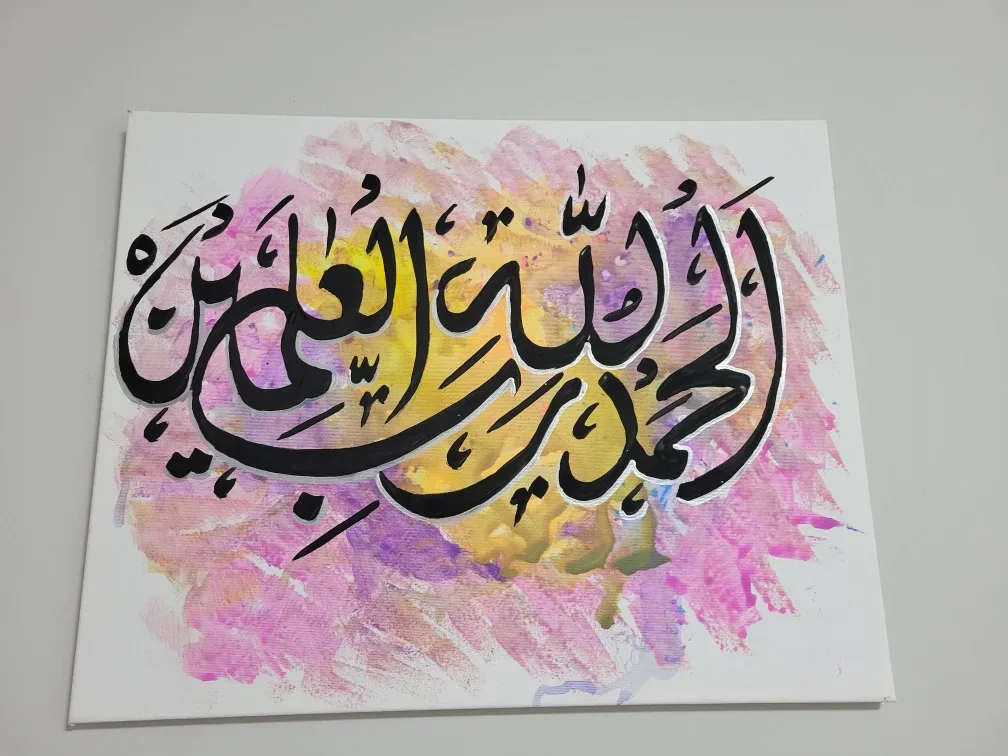 الْحَمْدُ لِلّٰهِ رَبِّ الْعٰلَمِيْنَ